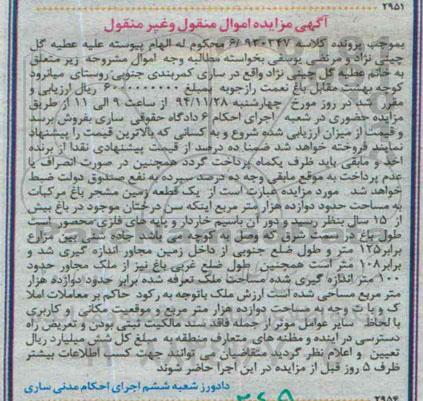 ۲۹۵۱
آگهی مزایده اموال منقول وغیر منقول
بموجب پرونده کلاسه ۹۳۰۲۴۷ /۶ محکوم له الهام پیوسته علیه عطیه گل
چینی نژاد و مرتضی یوسفی بخواسته مطالبه وجه اموال مشروحه زیر متعلق
به خانم عطیه گل چینی نژاد واقع در ساری کمربندی جنوبی روستای میانرود
کوچه بهشت مقابل باغ نعمت رازجویه بمبلغ ۶۰۰۰۰۰۰۰۰۰ ریال ارزیابی و
مقرر شد در روز مورخ چهارشنبه ۹۴/۱۱/۲۸ از ساعت ۹ الی ۱۱ از طریق
مزایده حضوری در شعبه اجرای احکام ۶ دادگاه حقوقی ساری بفروش برسد
و قیمت از میزان ارزیابی شده شروع و به کسانی که بالاترین قیمت را پیشنهاد
نمایند فروخته خواهد شد ضمنا ده درصد از قیمت پیشنهادی نقدا از برنده
اخذ و مابقی باید ظرف یکماه پرداخت گردد همچنین در صورت انصراف یا
عدم پرداخت به موقع مابقی وجه ده درصد سپرده به نفع صندوق دولت ضبط
خواهد شد مورد مزایده عبارت است از یک قطعه زمین مشجر باغ مرکبات
به مساحت حدود دوازده هزار متر مربع اینکه سن درختان موجود در باغ بیش
از ۱۵ سال بنظر رسید و دور آن باسیم خاردار و پایه های فلزی محصور است
طول باغ در سمت شرق که وصل به کوچه می باشد جاده شنی بین مزارع
برابر۱۲۵ متر و طول ضلع جنوبی از داخل زمین مجاور اندازه گیری شد و
برابر۱۰۸ متر است همچنین طول ضلع غربی باغ نیز از ملک مجاور حدود
۱۰۰ متر اندازه گیری شده مساحت ملک تعرفه شده برابر حدود دوازده هزار
متر مربع مساحی شده است ارزش ملک باتوجه به رکود حاکم بر معاملات املا
ک و با توجه به مساحت دوازده هزار متر مربع و موقعیت مکانی و کاربری
با لحاظ سایر عوامل موثر از جمله فاقد سند مالکیت ثبتی بودن و تعریض راه
دسترسی در آینده و مظنه های متعارف منطقه به مبلغ کل شش میلیارد ریال
تعیین و اعلام نظر گردید متقاضیان می توانند جهت کسب اطلاعات بیشتر
ظرف ۵ روز قبل از مزایده در این اجرا حاضر شوند
دادورز شعبه ششم اجرای احکام مدنی ساری
۲۹۵۴